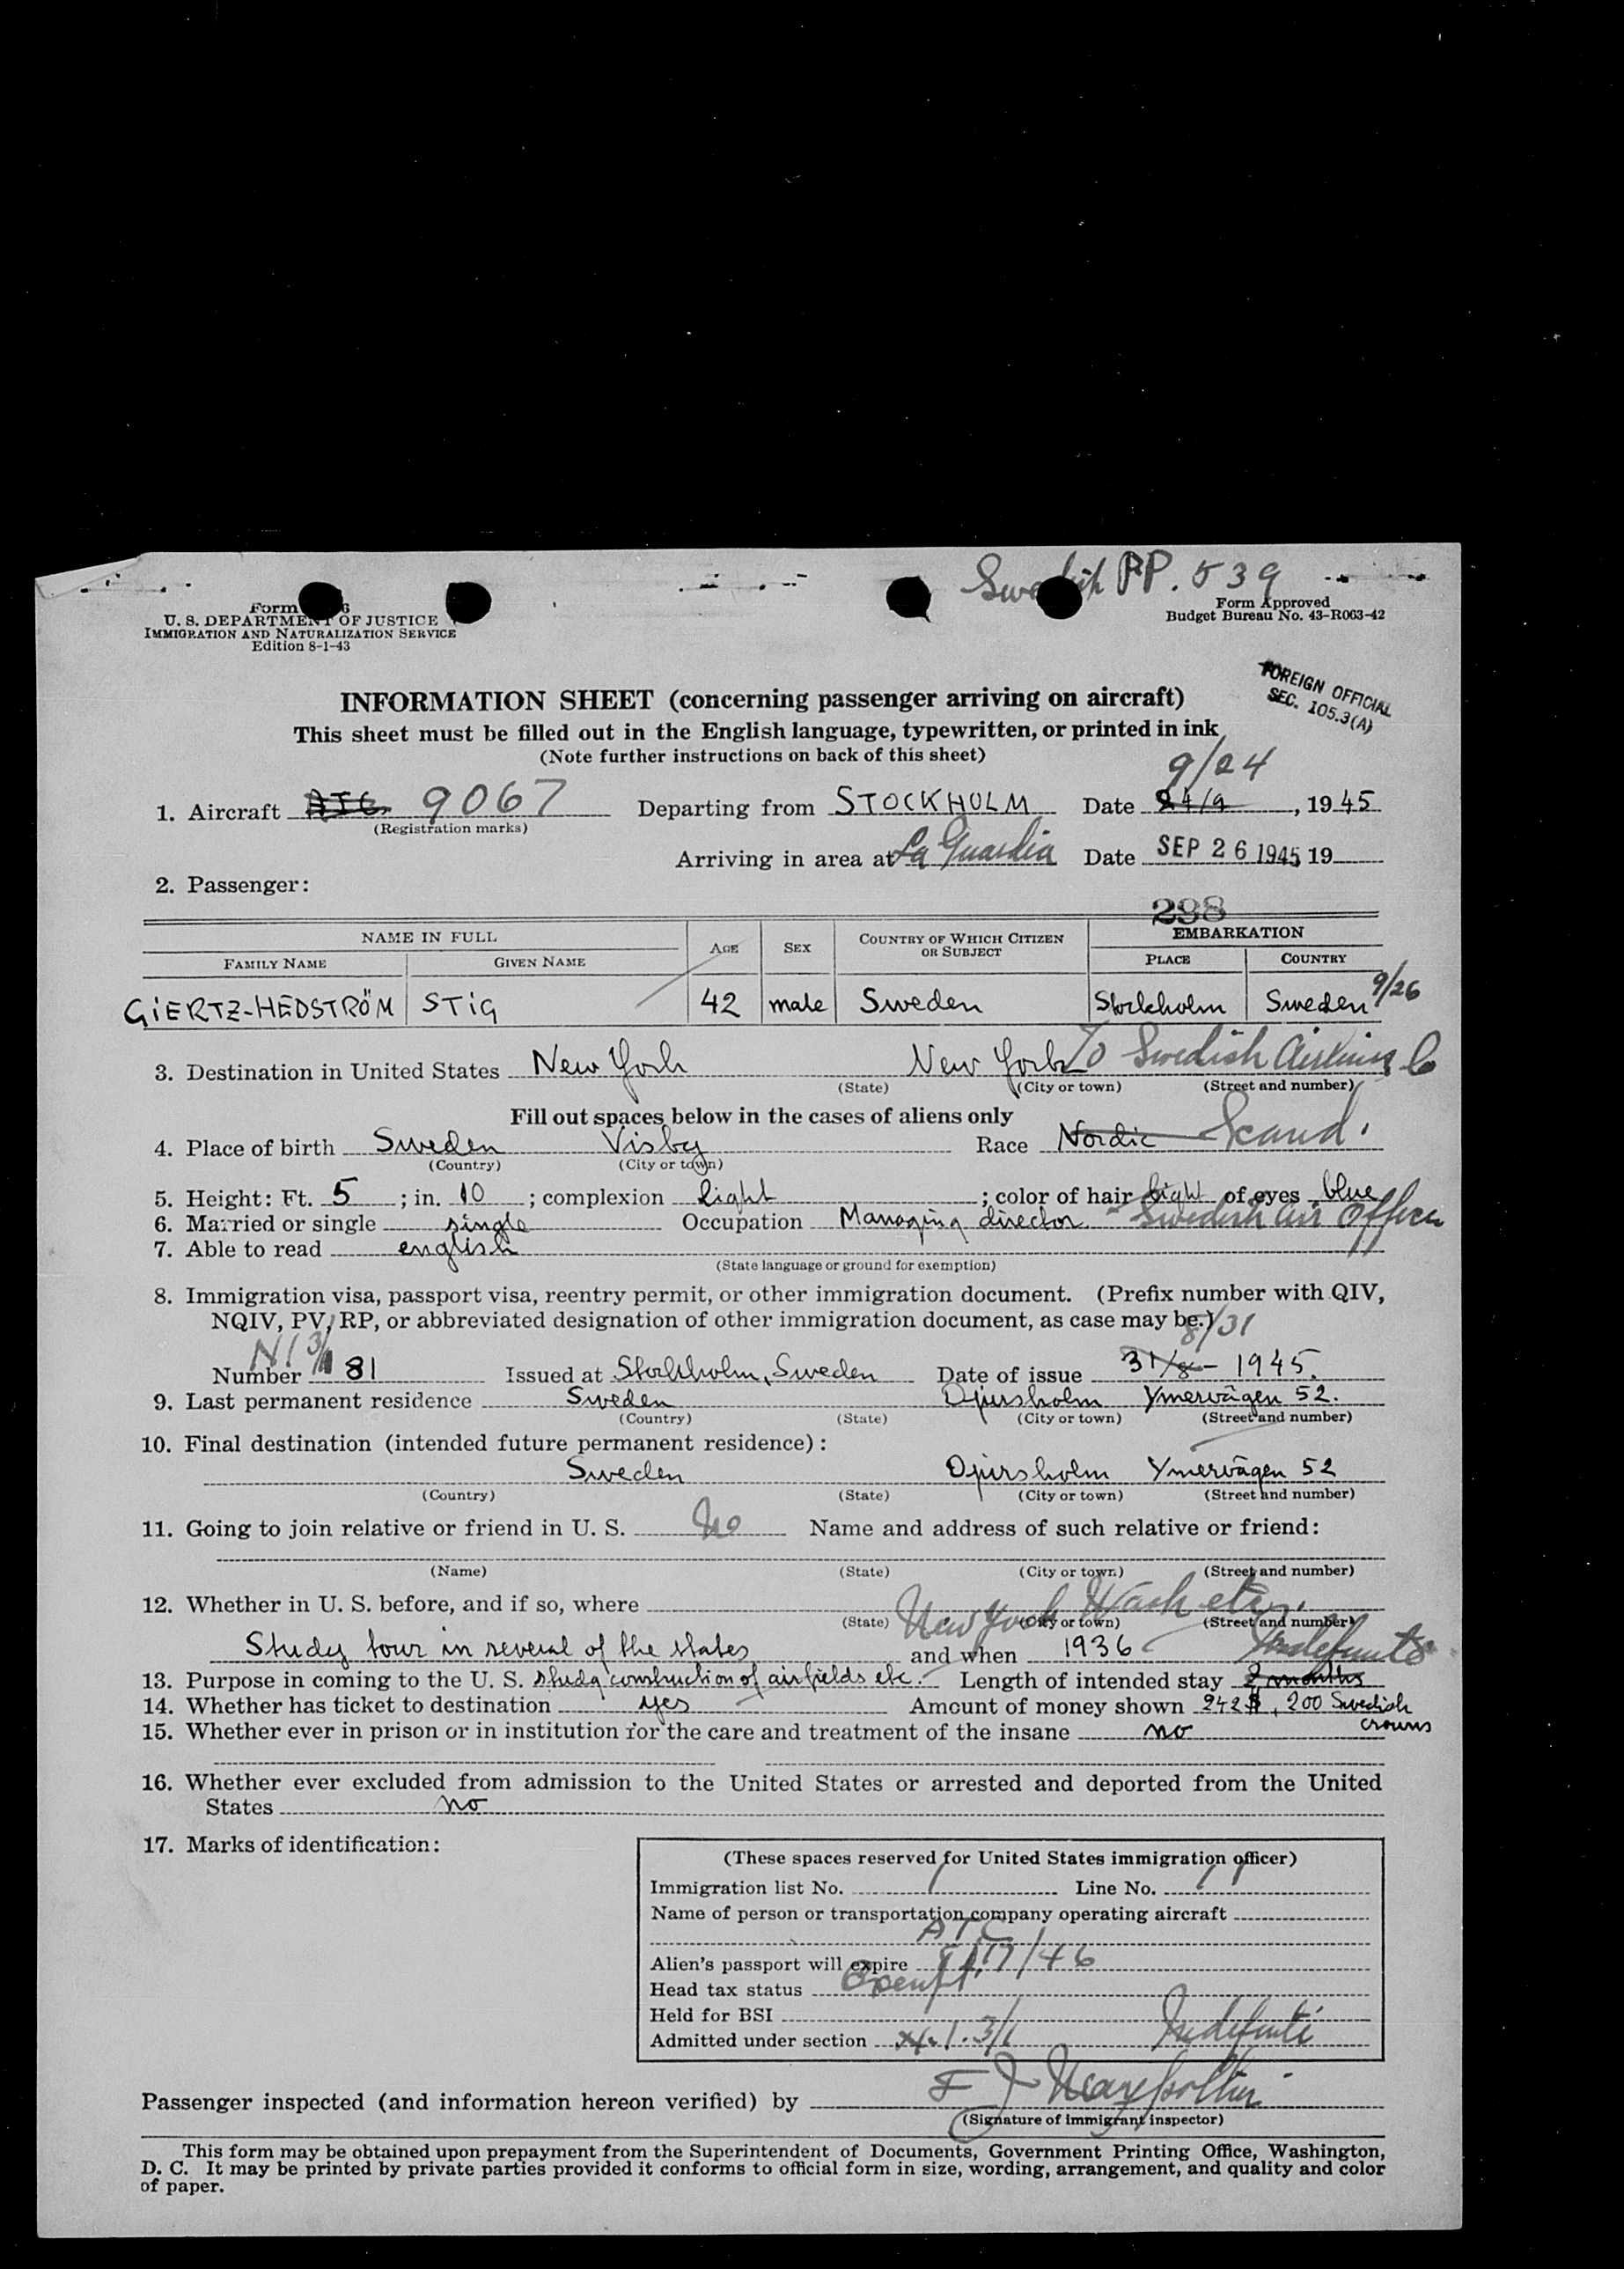 Swedish PP. 539
Form
U. S. DEPARTMENT OF JUSTICE
IMMIGRATION AND NATURALIZATION SERVICE
Edition 8-1-43
Form Approved
Budget Bureau No. 43-R063-42
FOREIGN OFFICIAL
SEC. 105.3(A)
INFORMATION SHEET (concerning passenger arriving on aircraft)
This sheet must be filled out in the English language, typewritten, or printed in ink
(Note further instructions on back of this sheet)
9/24
1. Aircraft ATC 9067 Departing from STOCKHOLM Date 24/9, 1945
(Registration marks)
Arriving in area at La Guardia Date SEP 26 1945 19
2. Passenger:
298
NAME IN FULL AGE SEX COUNTRY OF WHICH CITIZEN OR SUBJECT EMBARKATION
FAMILY NAME GIVEN NAME PLACE COUNTRY
GIERTZ-HEDSTRÖM STIG 42 male Sweden Stockholm Sweden 9/26
3. Destination in United States New York New York To Swedish Airlines Co
(State) (City or town) (Street and number)
Fill out spaces below in the cases of aliens only
4. Place of birth Sweden Visby Race Nordic Scand.
(Country) (City or town)
5. Height: Ft. 5; in. 10; complexion light; color of hair light of eyes blue
6. Married or single single Occupation Managing director Swedish Air Officer
7. Able to read english
(State language or ground for exemption)
8. Immigration visa, passport visa, reentry permit, or other immigration document. (Prefix number with QIV,
NQIV, PV, RP, or abbreviated designation of other immigration document, as case may be.)
8/31
Number 81 Issued at Stockholm, Sweden Date of issue 31/8 - 1945.
9. Last permanent residence Sweden Djursholm Ymervägen 52.
(Country) (State) (City or town) (Street and number)
10. Final destination (intended future permanent residence):
Sweden Djursholm Ymervägen 52
(Country) (State) (City or town) (Street and number)
11. Going to join relative or friend in U. S. No Name and address of such relative or friend:
(Name) (State) (City or town) (Street and number)
12. Whether in U. S. before, and if so, where New York Wash etc.
(State) (City or town) (Street and number)
Study tour in several of the states and when 1936 Indefinite
13. Purpose in coming to the U. S. study construction of airfields etc. Length of intended stay 2 months
14. Whether has ticket to destination yes Amount of money shown 242 $, 200 Swedish
crowns
15. Whether ever in prison or in institution for the care and treatment of the insane no
16. Whether ever excluded from admission to the United States or arrested and deported from the United
States no
17. Marks of identification:
(These spaces reserved for United States immigration officer)
Immigration list No. 1 Line No.
Name of person or transportation company operating aircraft
ATC
Alien's passport will expire 17/46
Head tax status Exempt
Held for BSI
Admitted under section 3/1 Indefinite
Passenger inspected (and information hereon verified) by F J
(Signature of immigrant inspector)
This form may be obtained upon prepayment from the Superintendent of Documents, Government Printing Office, Washington,
D. C. It may be printed by private parties provided it conforms to official form in size, wording, arrangement, and quality and color
of paper.